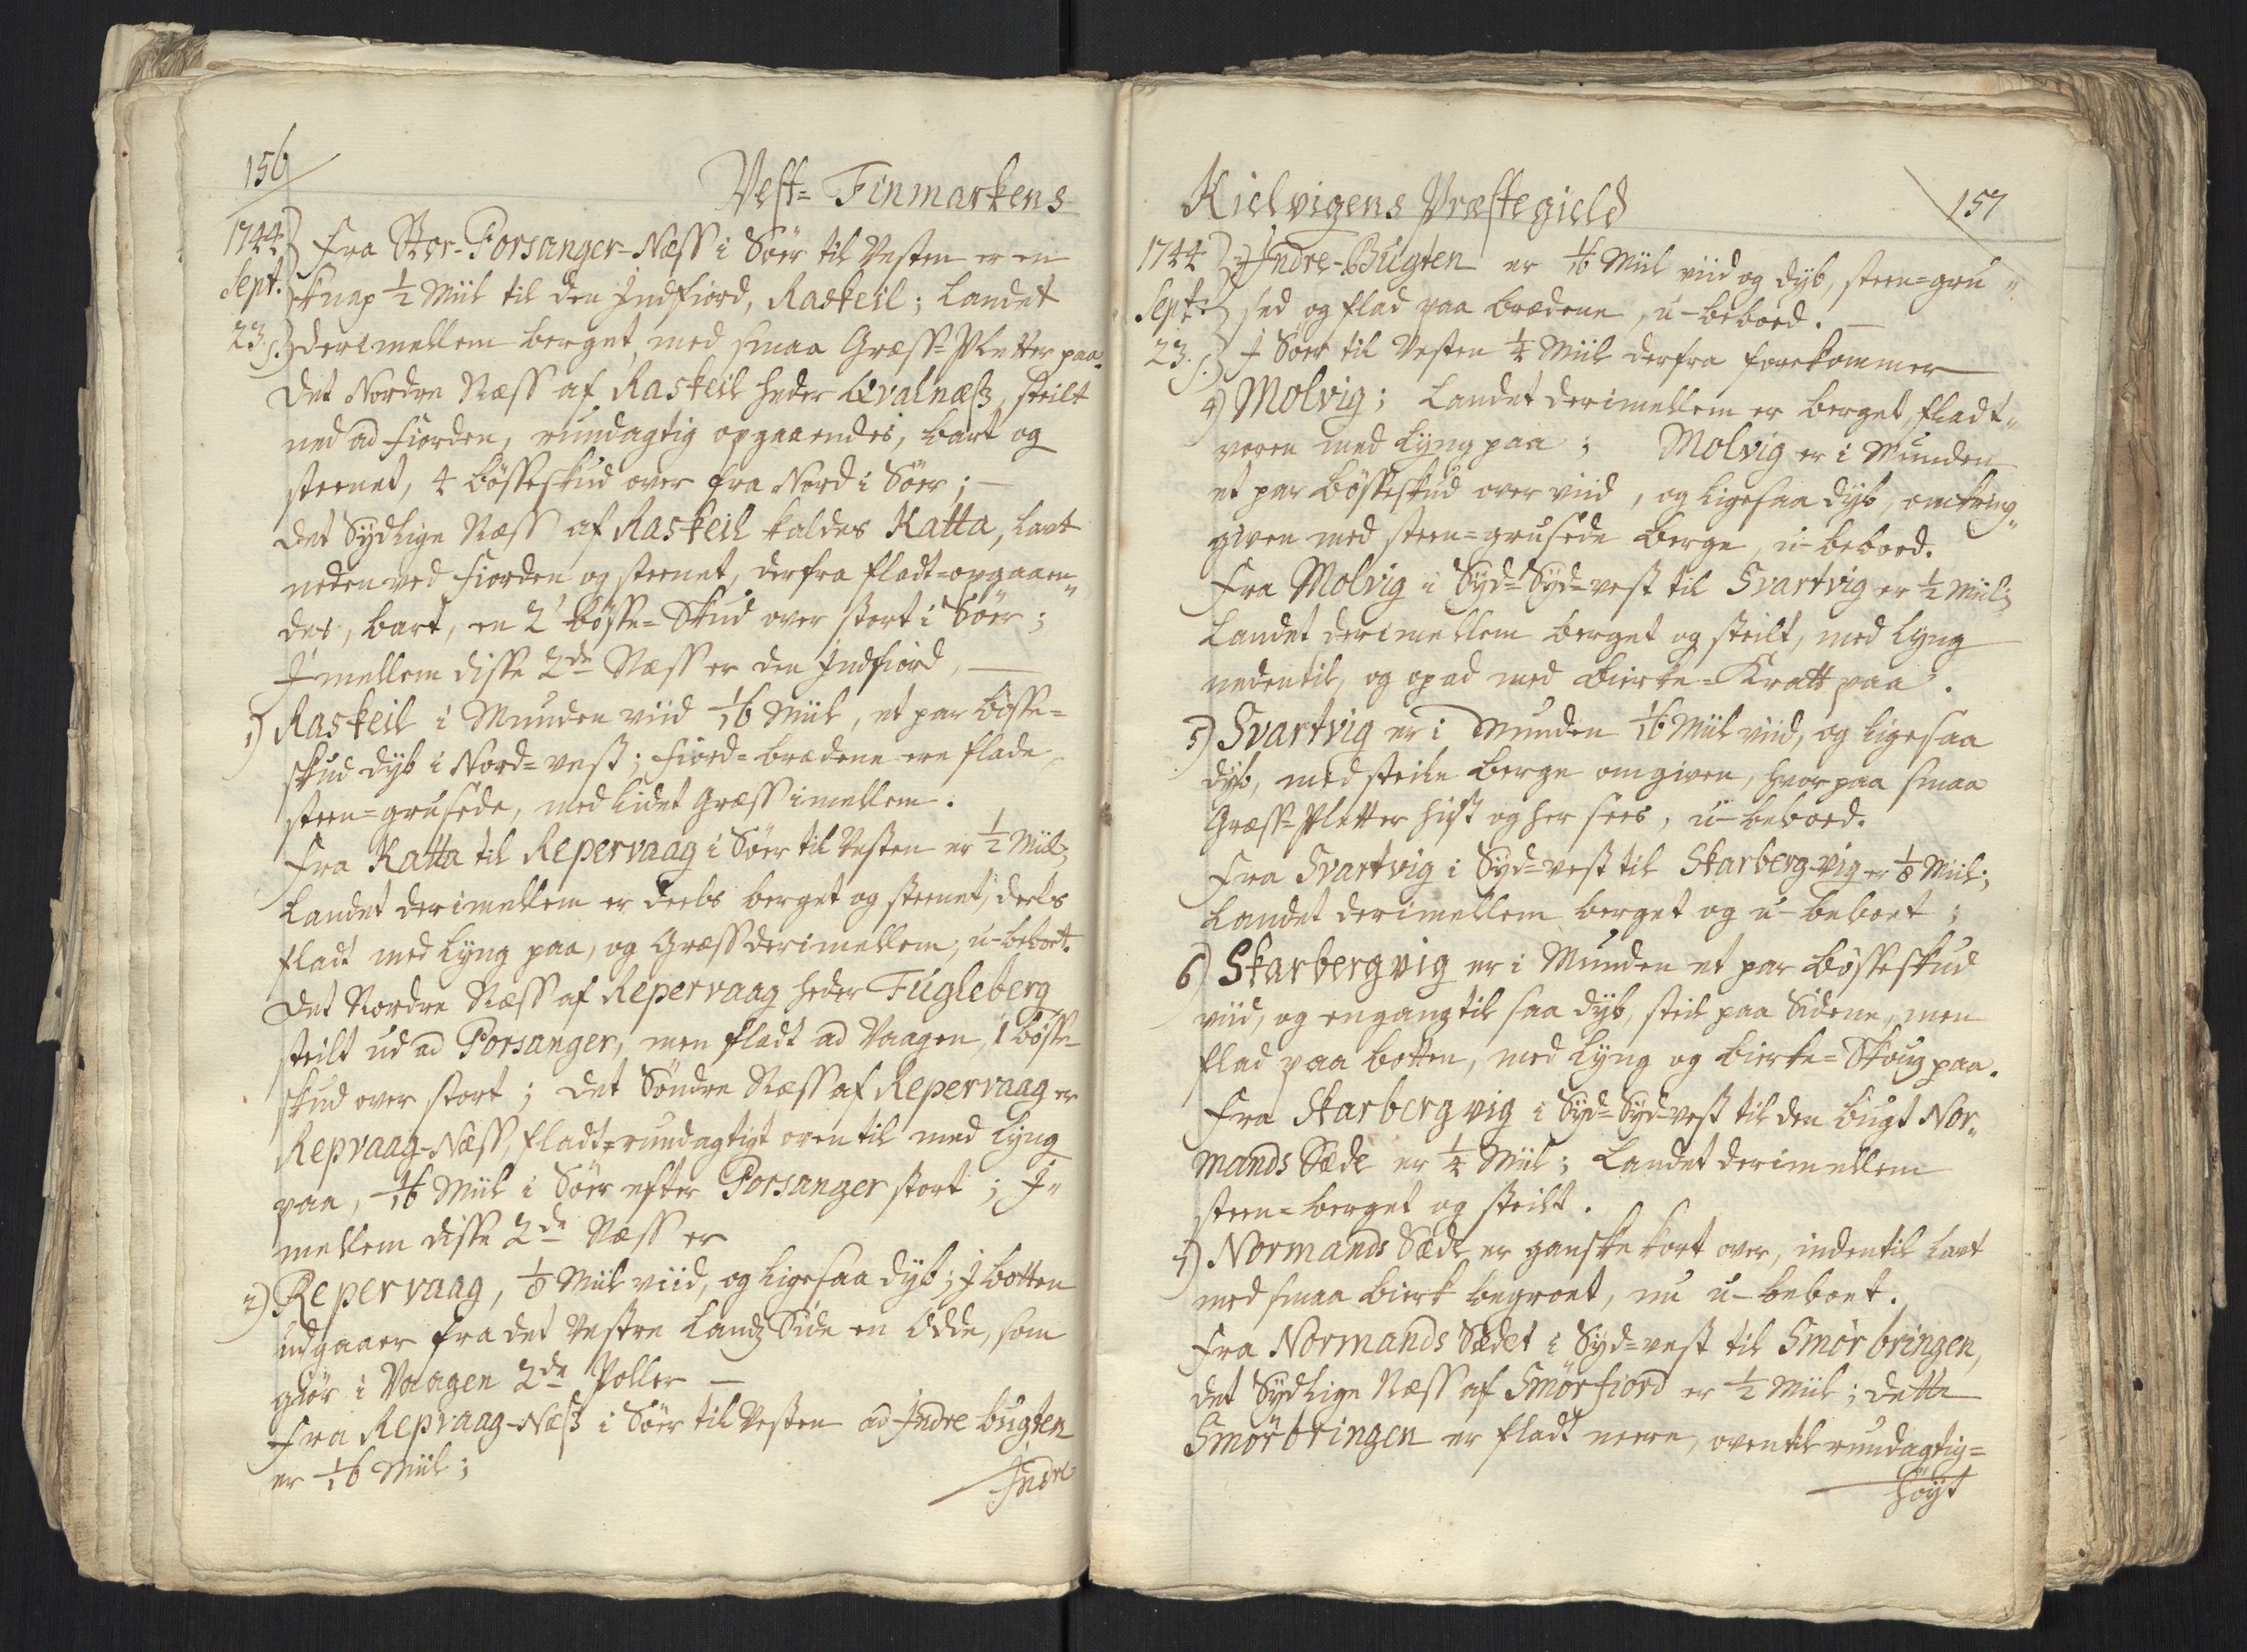 156
Vest- Finmarkens
1744 Fra Stor-Porsanger-Næss i Söer til Vesten er en
Sept. knap ½ Miil til den Indfiord, Raskeil; Landet
23. derimellem berget, med smaa Græss-Pletter paa.
Det Nordre Næss af Raskeil heder Qvalnæss, steilt
ned ad Fiorden, rundagtig opgaaendes, bart og
steenet, 4 bösseskud over fra Nord i Söer; —
Det Sydlige Næss af Raskeil kaldes Katta, lavt
neden ved Fiorden og steenet, derfra fladt-opgaaen„
des, bart, en 2 bösse-Skud over stort i Söer;
Imellem disse 2de Næss er den Indfiord, —
1) Raskeil i Munden viid 1/16 Miil, et par bösse-
skud dyb i Nord-vest; Fiord-bredene ere flade,
steen-grusede, med lidet Græss imellem.
Fra Katta til Repervaag i Söer til Vesten er ½ Miil;
Landet derimellem er deels berget og steenet, deels
fladt med Lyng paa, og Græss derimellem, u-beboet.
Det Nordre Næss af Repervaag heder Fugleberg
steilt ud ad Porsanger, men fladt ad Vaagen, 1 bösse-
skud over stort; Det Söndre Næss af Repervaag er
Repvaag-Næss, fladt-rundagtigt oventil med Lyng
paa, 1/16 Miil i Söer efter Porsanger stort; I„
mellem disse 2de Næss er
2) Repervaag, 1/8 Miil viid, og ligesaa dyb; I botten
udgaaer fra det Vestre Landz Side en Odde, som
giör i Vaagen 2de Poller —
Fra Repvaag-Næss i Söer til Vesten ad Indre bugten
er 1/16 Miil;
Indre
Kielvigens Præstegield
157
1744 3) Indre-Bugten er 1/16 Miil viid og dyb, steen-gru„
Sept. sed og flad paa bredene, u-beboed. —
23. I Söer til Vesten ¼ Miil derfra forekommer
4) Molvig; Landet derimellem er berget, fladt„
voren med Lyng paa; Molvig er i Munden
et par bösseskud over viid, og ligesaa dyb, omkring„
given med steen-grusede berge, u-beboed.
Fra Molvig i Syd-Syd-vest til Svartvig er ½ Miil;
Landet derimellem berget og steilt, med Lyng
nedentil, og opad med bierke-Kratt paa.
5) Svartvig er i Munden 1/16 Miil viid, og ligesaa
dyb, med steile berge omgiven, hvorpaa smaa
Græss-Pletter hist og her sees, u-beboed.
Fra Svartvig i Syd-vest til Skarberg-vig er 1/8 Miil;
Landet derimellem berget og u-beboet;
6) Skarbergvig er i Munden et par bösseskud
viid, og engang til saa dyb, steil paa Sidene, men
flad paa botten, med Lyng og bierke-Skoug paa.
Fra Skarbergvig i Syd-Syd-vest til den bugt Nor„
mands Sæde er ¼ Miil; Landet derimellem
steen-berget og steilt.
7) Normands Sæde er ganske kort over, indentil lavt
med smaa bierk begroet, nu u-beboet.
Fra Normands Sædet i Syd-vest til Smörbringen,
det Sydlige Næss af Smörfiord er ½ Miil; dette
Smörbringen er fladt neere, oventil rundagtig-
höyt